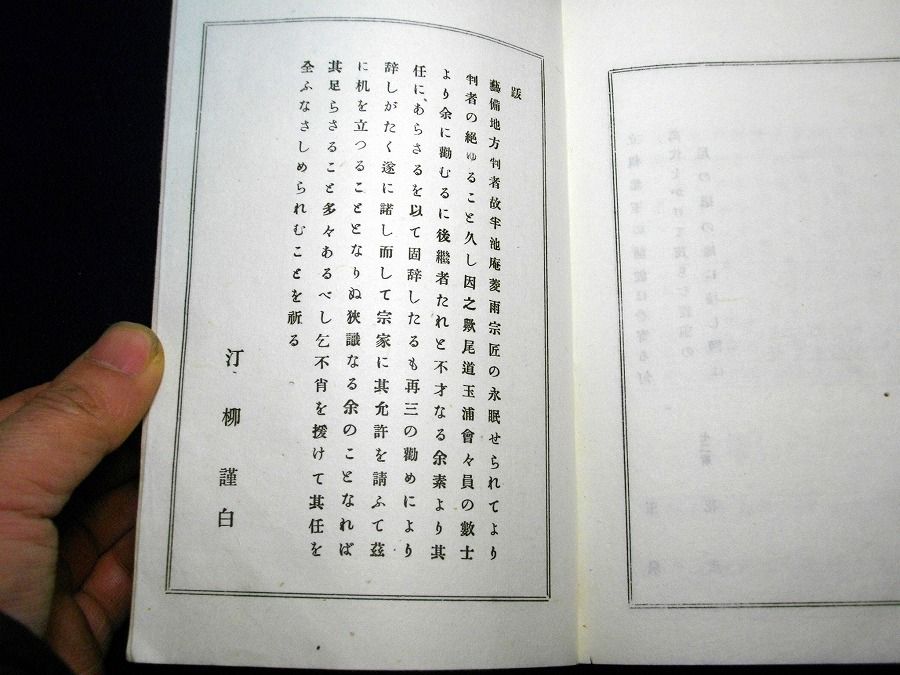 跋
藝備地方判者故半池庵菱雨宗匠の永眠せられてより
判者の絶ゆること久し因之歟尾道玉浦會々員の數士
より余に勸むるに後繼者たれと不才なる余素より其
任に、あらさるを以て固辞したるも再三の勸めにより
辞しがたく遂に諾し而して宗家に其允許を請ふて茲
に机を立つることとなりぬ狹識なる余のことなれば
其足らさること多々あるべし乞不肖を援けて其任を
全ふなさしめられむことを祈る
汀柳謹白